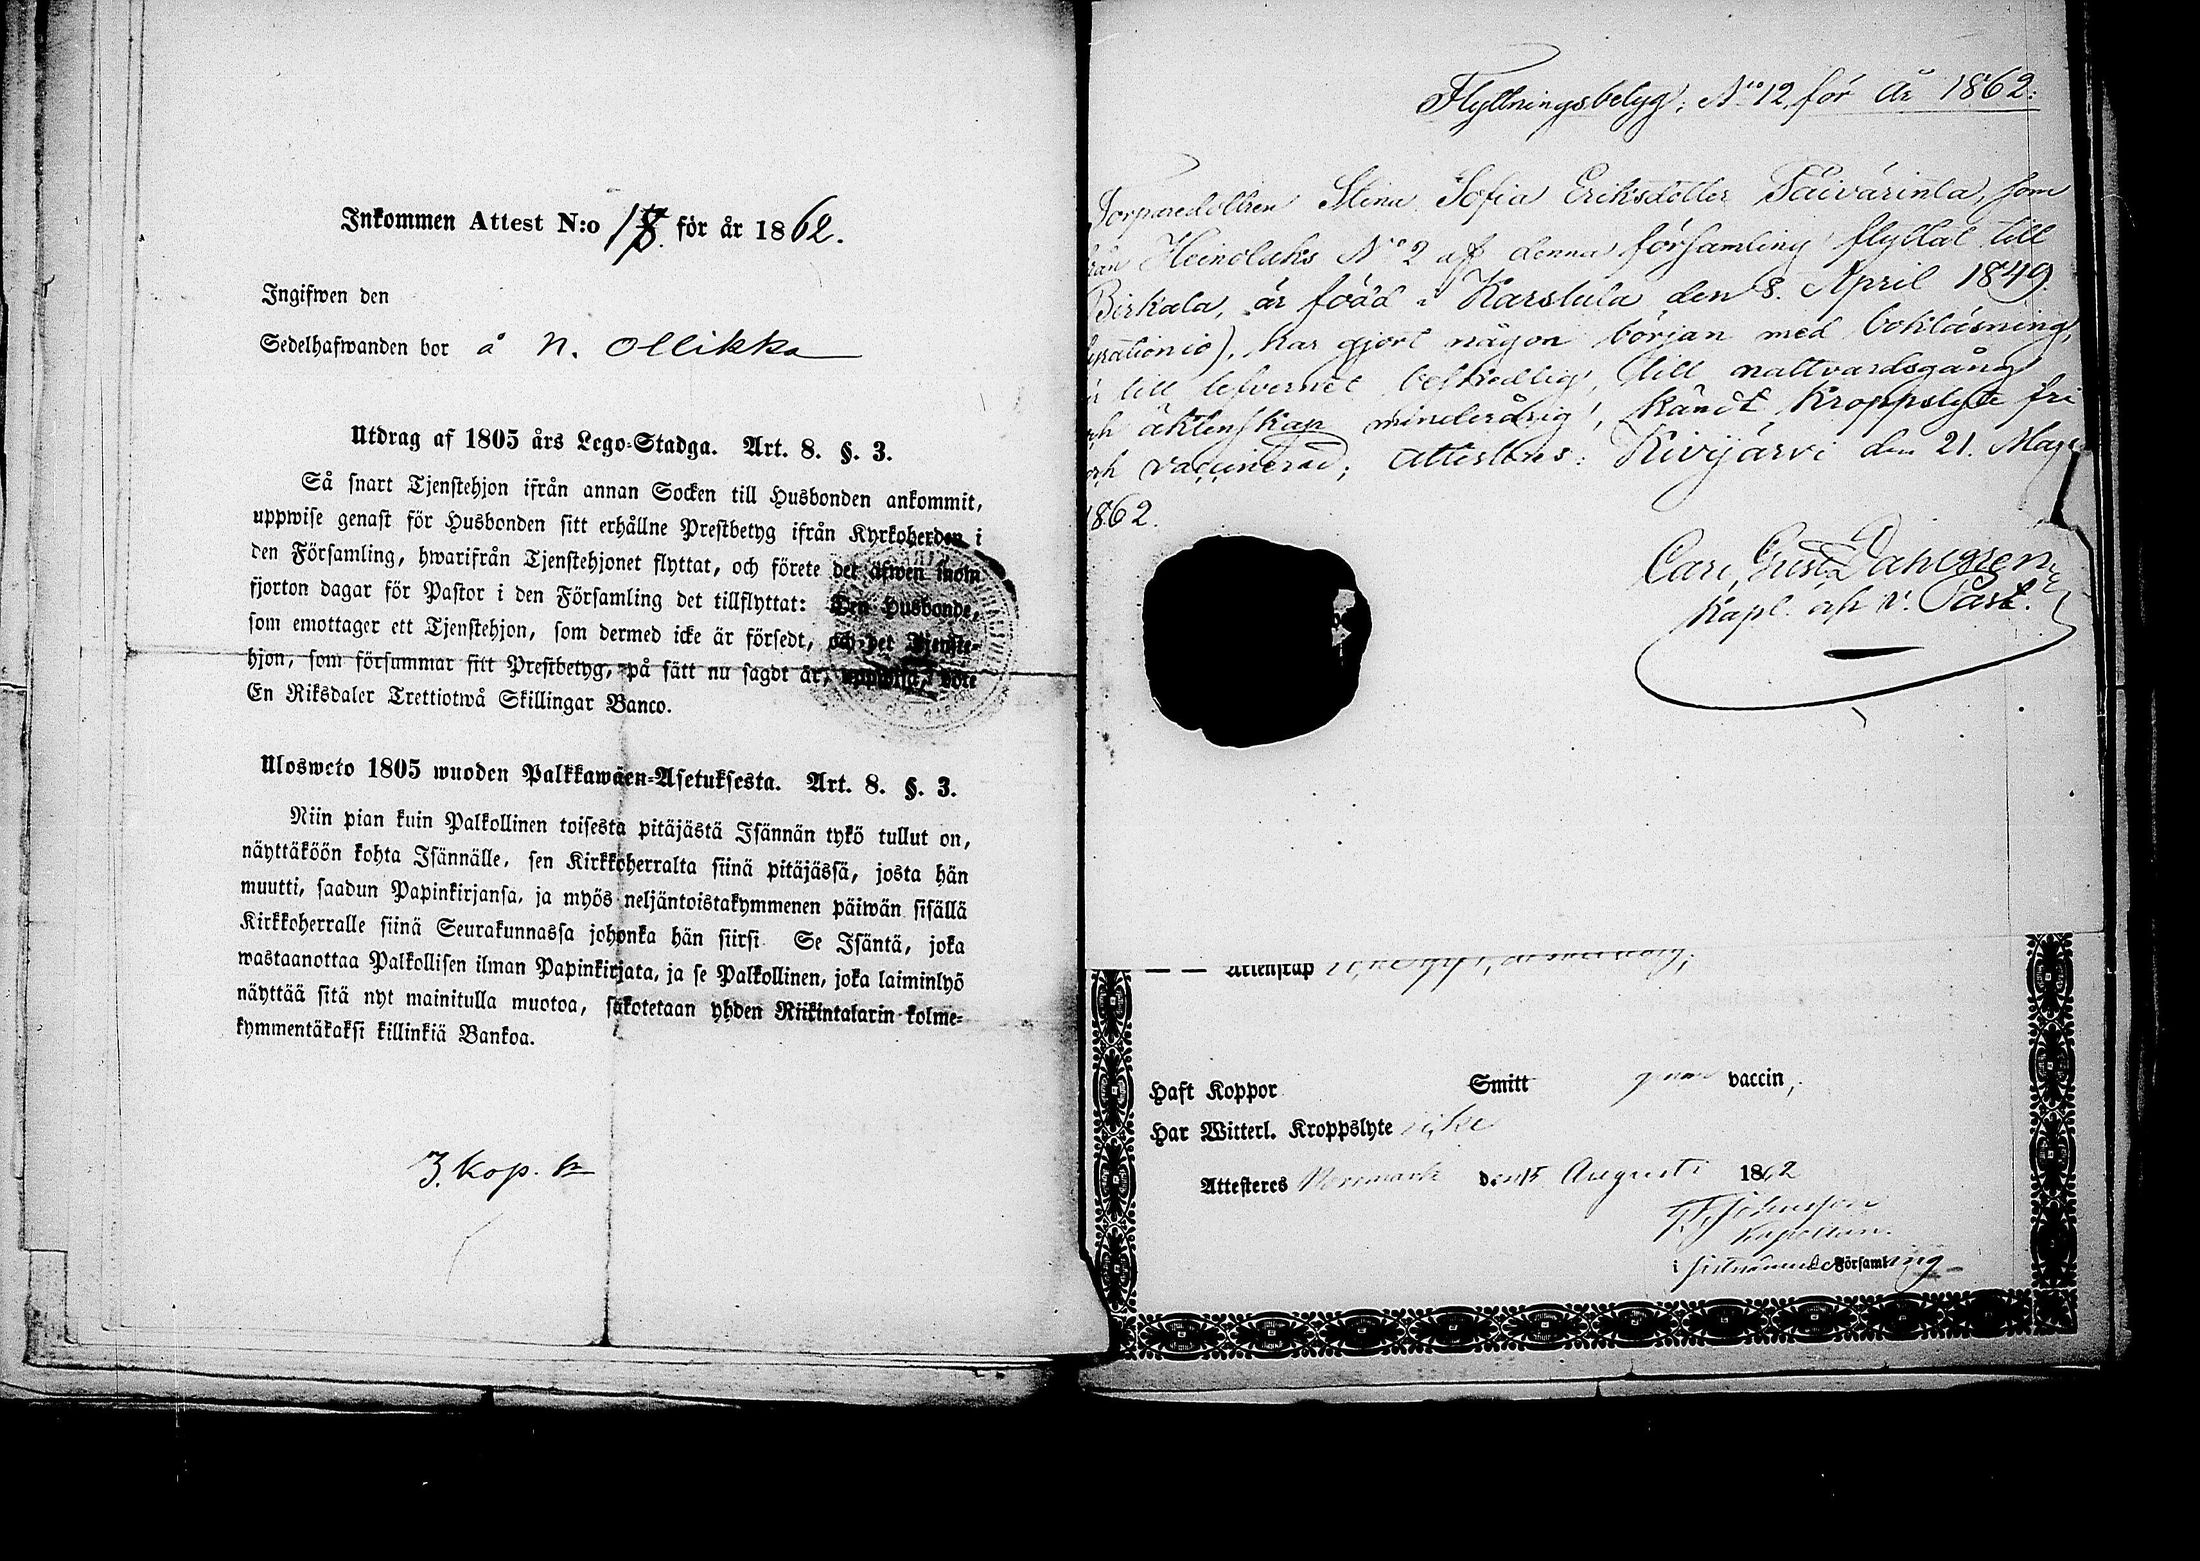 Inkommen Attest N:o 18. för år 1862.
Ingifwen den
Sedelhafwanden bor å N. Ollikka
Utdrag af 1805 års Lego-Stadga. Art. 8. §. 3.
Så snart Tjenstehjon ifrån annan Socken till Husbonden ankommit,
uppwise genast för Husbonden sitt erhållne Prestbetyg ifrån Kyrkoherden i
den Församling, hwarifrån Tjenstehjonet flyttat, och förete det äfwen inom
fjorton dagar för Pastor i den Församling det tillflyttat: Den Husbonde,
som emottager ett Tjenstehjon, som dermed icke är försedt, och det Tjenste-
hjon, som försummar sitt Prestbetyg, på sätt nu sagdt är, uppwisa, böte
En Riksdaler Trettiotwå Skillingar Banco.
Ulosweto 1805 wuoden Palkkawäen-Asetuksesta. Art. 8. §. 3.
Niin pian kuin Palkollinen toisesta pitäjästä Isännän tykö tullut on,
näyttäköön kohta Isännälle, sen Kirkkoherralta siinä pitäjässä, josta hän
muutti, saadun Papinkirjansa, ja myös neljäntoistakymmenen päiwän sisällä
Kirkkoherralle siinä Seurakunnassa johonka hän siirsi Se Isäntä, joka
wastaanottaa Palkollisen ilman Papinkirjata, ja se Palkollinen, joka laiminlyö
näyttää sitä nyt mainitulla muotoa, sakotetaan yhden Riikintalarin kolme-
kymmentäkaksi killinkiä Bankoa.
3. Kop.
Flyttningsbetyg, No 12, för År 1862:
Torparedottren Stina Sofia Eriksdotter Päivärinta, som
från Heinolaks No 2 af denna församling flyttat till
Birkala, är född i Karstula den 8. April 1849.
har gjort någon början med bokläsning,
är till lefvernet beskedlig, till nattvardsgång
och äktenskap minderårig, kändt kroppslyte fri
och vaccinerad; attesteras: Kivijärvi den 21. Maji
1862.
Carl Gust. Dahlgren
Kapl. och v. Past.
Äktenskap
Haft Koppor Smitt genom vaccin,
Har Witterl. Kroppslyte icke
Attesteres Norrmark den 15 Augusti 1862
Johnsson
Kapellan
i sistnämnde Församling